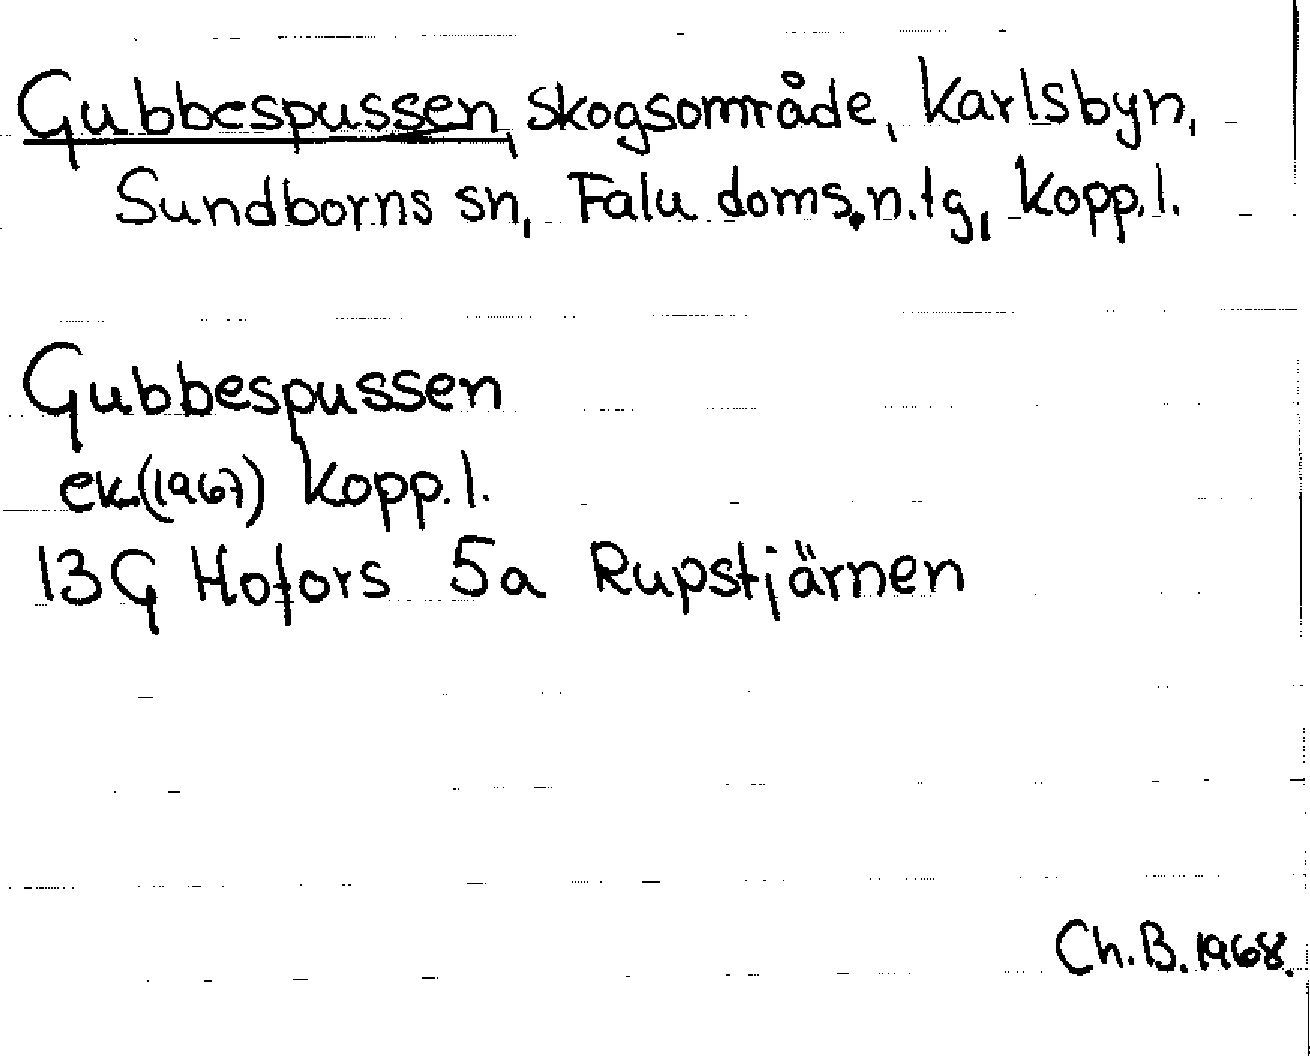 Gubbespussen, skogsområde, Karlsbyn,
Sundborns sn, Falu doms.n.tg, Kopp.l.
Gubbespussen
ek.(1967) Kopp.l.
13G Hofors 5a Rupstjärnen
Ch.B. 1968.